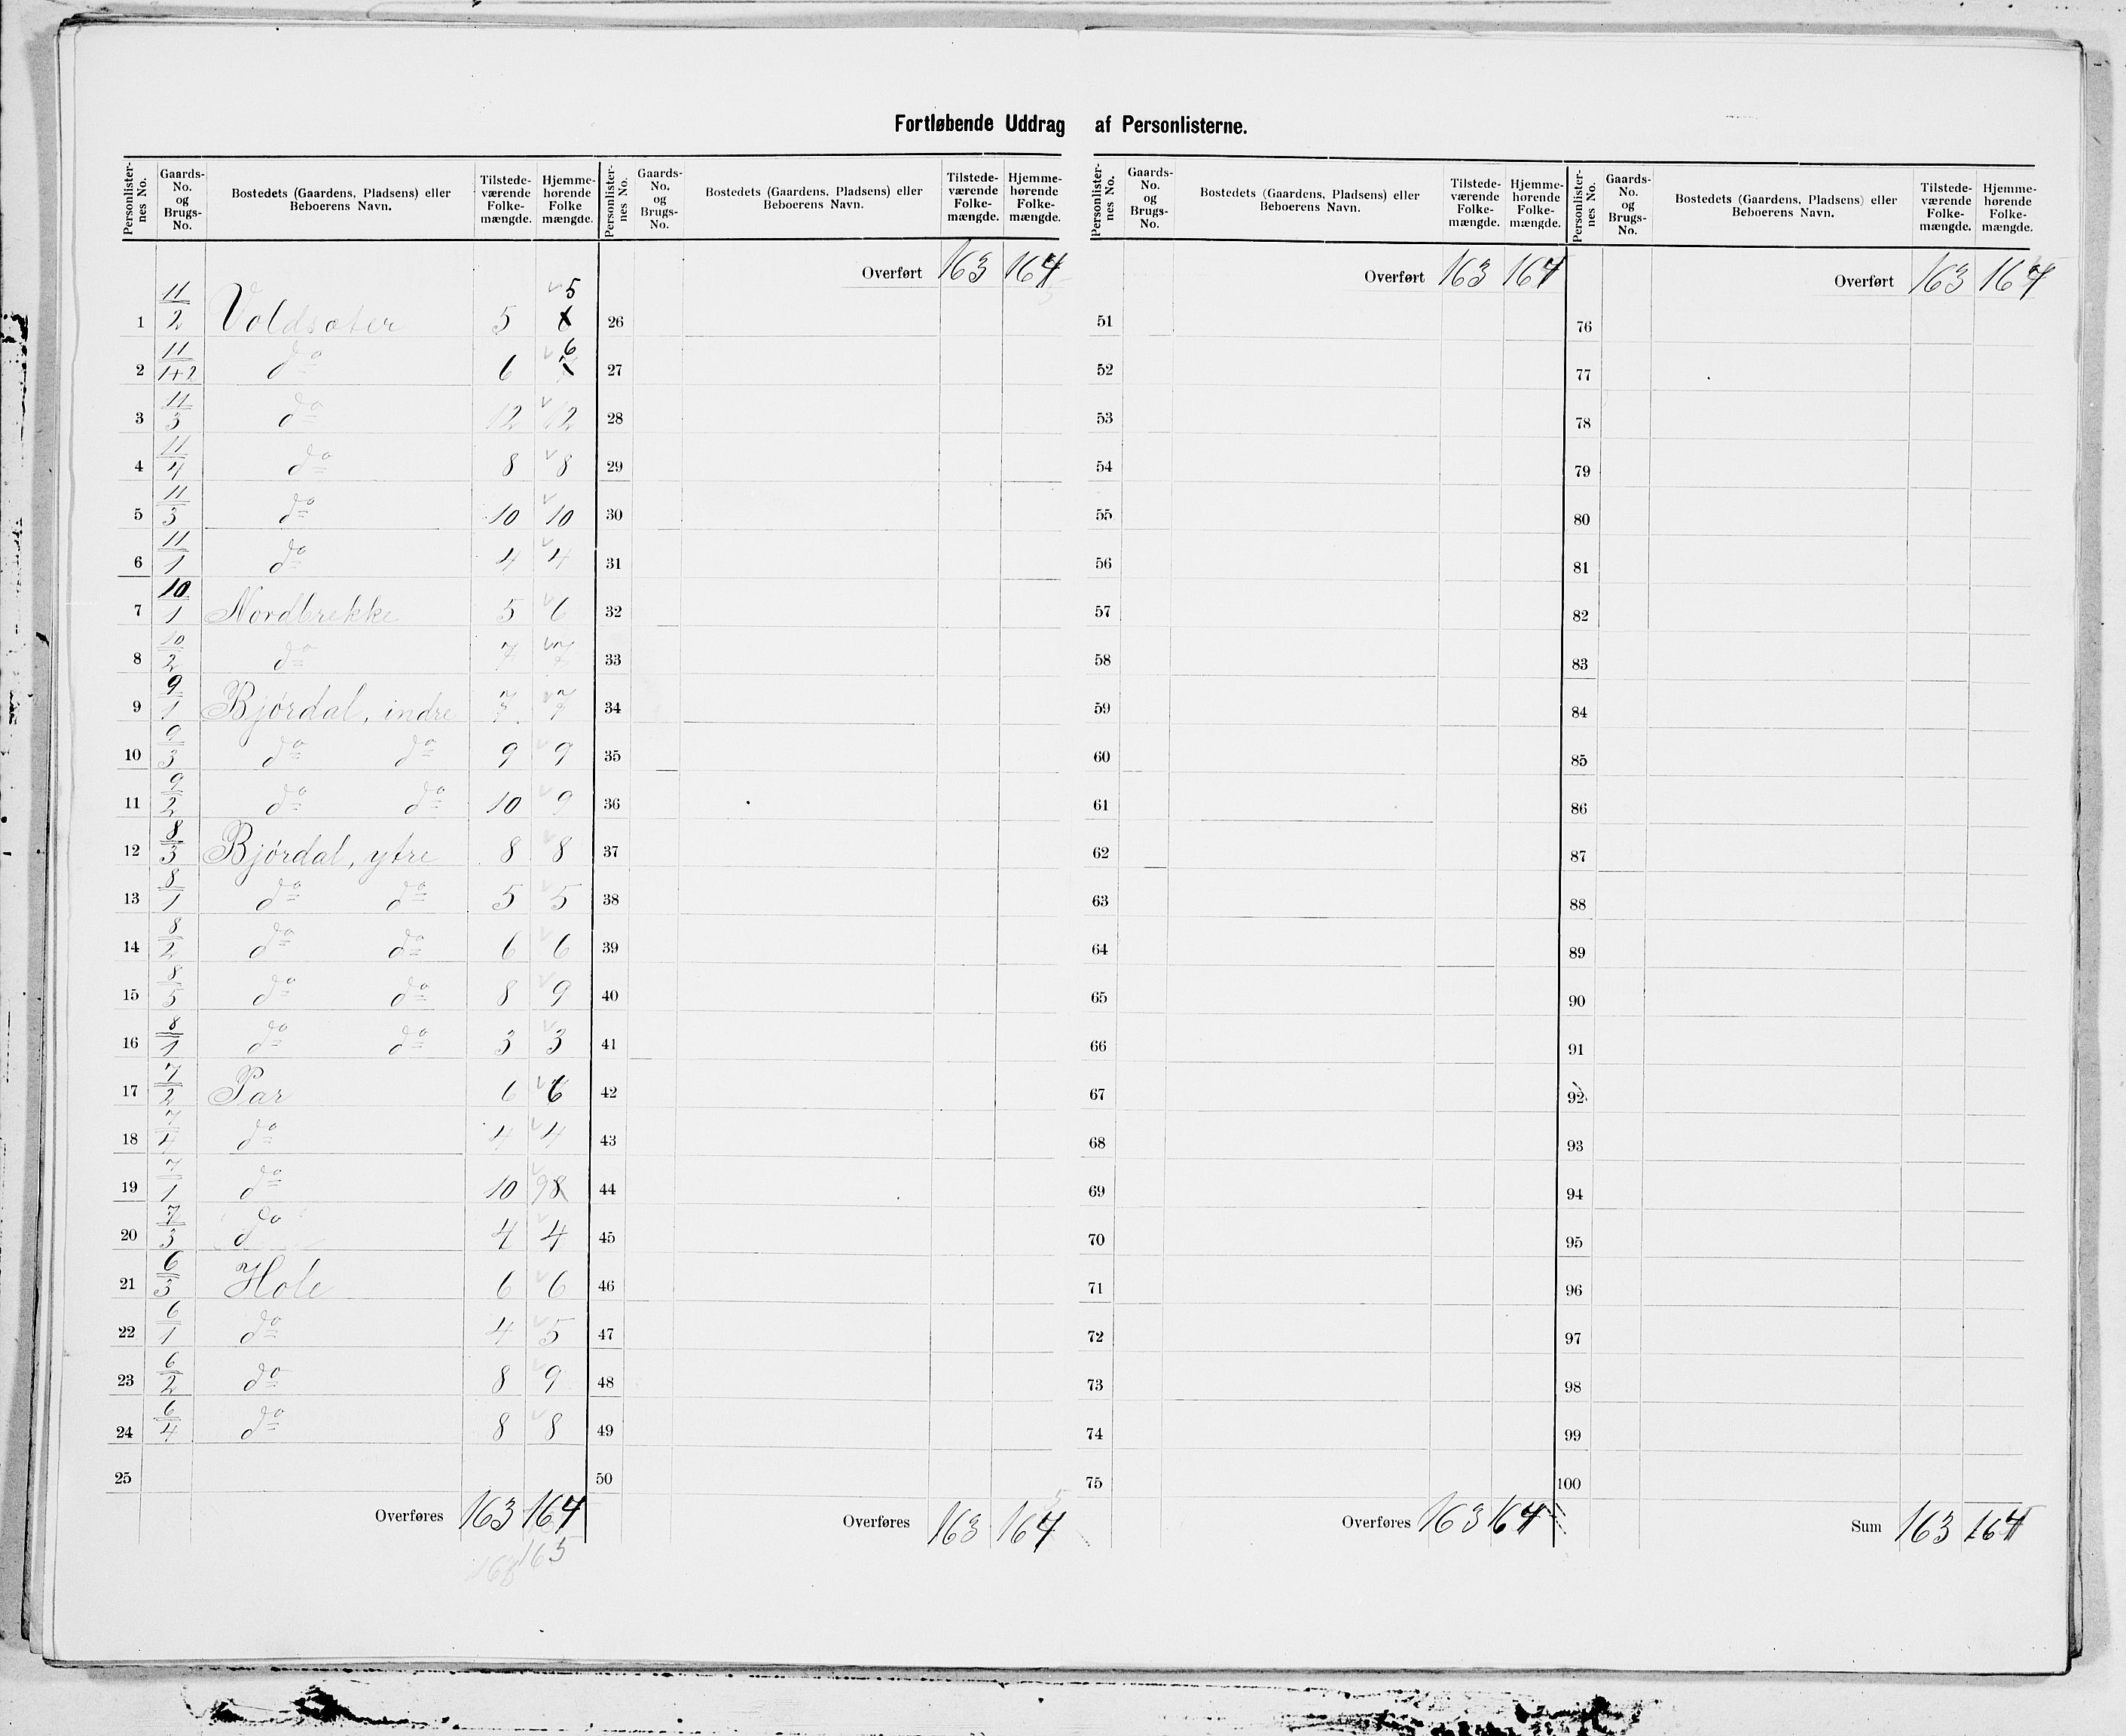 Fortløbende Uddrag af Personlisterne.
Personlister-nes No. | Gaards-No. og Brugs-No. | Bostedets (Gaardens, Pladsens) eller Beboerens Navn. | Tilstede-værende Folke-mængde. | Hjemme-hørende Folke mængde.
1 11/2 Voldsæter 5 5
2 11/1+2 do 6 6
3 11/3 do 12 12
4 11/4 do 8 8
5 11/3 do 10 10
6 11/1 do 4 4
7 10/1 Nordbrekke 5 6
8 10/2 do 7 7
9 9/1 Bjørdal, indre 7 7
10 9/3 do do 9 9
11 9/2 do do 10 9
12 8/3 Bjørdal, ytre 8 8
13 8/1 do do 5 5
14 8/2 do do 6 6
15 8/5 do do 8 9
16 8/1 do do 3 3
17 7/2 Par 6 6
18 7/4 do 4 4
19 7/1 do 10 9 8
20 7/3 do 4 4
21 6/3 Hole 6 6
22 6/1 do 4 5
23 6/2 do 8 9
24 6/4 do 8 8
25
Overføres 163 164
165
Personlister-nes No. | Gaards-No. og Brugs-No. | Bostedets (Gaardens, Pladsens) eller Beboerens Navn. | Tilstede-værende Folke-mængde. | Hjemme-hørende Folke-mængde.
Overført 163 164
26
27
28
29
30
31
32
33
34
35
36
37
38
39
40
41
42
43
44
45
46
47
48
49
50
Overføres 163 164
Personlister-nes No. | Gaards-No. og Brugs-No. | Bostedets (Gaardens, Pladsens) eller Beboerens Navn. | Tilstede-værende Folke-mængde. | Hjemme-hørende Folke-mængde.
Overført 163 164
51
52
53
54
55
56
57
58
59
60
61
62
63
64
65
66
67
68
69
70
71
72
73
74
75
Overføres 163 164
Personlister-nes No. | Gaards-No. og Brugs-No. | Bostedets (Gaardens, Pladsens) eller Beboerens Navn. | Tilstede-værende Folke-mængde. | Hjemme-hørende Folke-mængde.
Overført 163 164
76
77
78
79
80
81
82
83
84
85
86
87
88
89
90
91
92
93
94
95
96
97
98
99
100
Sum 163 164